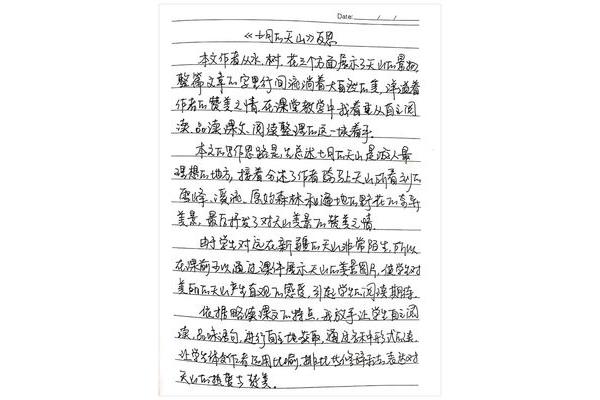 Date: / /
《七月的天山》反思
本文作者从水、树、花三个方面展示了天山的景物,
整篇文章的字里行间流淌着大自然的美,洋溢着
作者的赞美之情。在课堂教学中我着重从自主阅
读、品读课文、阅读整理的这一块着手。
本文的写作思路是先总述七月的天山是游人最
理想的地方,接着分述了作者骑马上天山所看到的
雪峰、溪流、原始森林和遍地的野花的奇异
美景,最后抒发了对天山美景的赞美之情。
由于学生对远在新疆的天山非常陌生,所以
在课前可以通过课件展示天山的美景图片,使学生对
美丽的天山产生直观的感受,引起学生的阅读期待。
依据略读课文的特点,我放手让学生自主阅
读、品味语句,进行自主地汲取,通过多种形式的读,
让学生体会作者运用比喻、排比等修辞手法,表达对
天山的热爱与赞美。